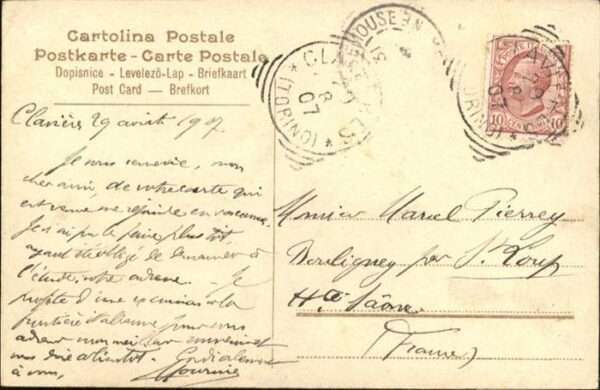 Cartolina Postale
Postkarte - Carte Postale
Dopisnice - Levelező-Lap - Briefkaart
Post Card — Brefkort
Clavières 29 août 1907
Je vous remercie, mon
cher ami, de votre carte qui
est venue me rejoindre en vacances.
Je n'ai pu le faire plus tôt,
ayant été obligé de demander à
l'étude votre adresse. Je
profite d'une excursion à la
frontière italienne pour vous
adresser mon
vous dire à bientôt. Cordialement
à vous,
CLAVIERES
(TORINO)
8
07
CLAVIERES
(TORINO)
8
07
10
10
Monsieur Marcel Pierrey
Bouligney par St Loup
Hte Saône
(France)